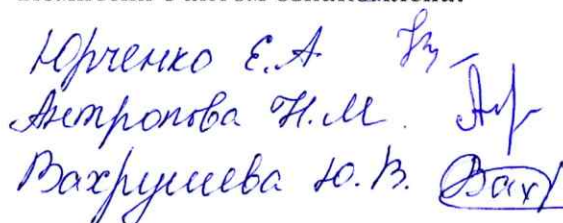 Юрченко Е.А.
Антропова Н.М.
Вахрушева Ю.В. Вах